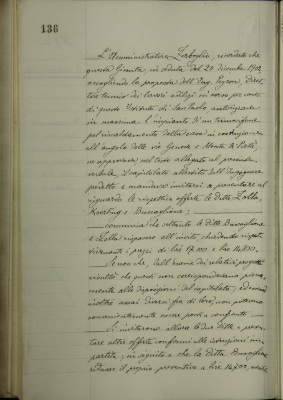 136
L'Amministratore Zerboglio, ricordato che
questa Giunta, in seduta del 20 dicembre 1902,
accogliendo la proposta dell'Ing. Peyron, Diret-
tore tecnico dei lavori edilizi in corso per conto
di questo Istituto di San Paolo autorizzava
in massima l'impianto di un termosifone
pel riscaldamento della casa in costruzione
all'angolo delle vie Genova e Monte di Pietà,
ne approvava, nel testo allegato al presente
verbale, il capitolato allestito dall'Ingegnere
predetto e mandava invitarsi a presentare al
riguardo le rispettive offerte le Ditte Zolla,
Koerting e Buscaglione;
comunica che soltanto le Ditte Buscaglione
e Zolla risposero all'invito, chiedendo rispet-
tivamente i prezzi di lire 17.000 e lire 14.800.
Senonchè, dall'esame dei relativi progetti
risultò che questi non corrispondevano piena-
mente alle disposizioni del capitolato, ed essendo
inoltre assai diversi fra di loro, non potevano
convenientemente essere posti a confronto.
Si invitarono allora le due Ditte a presen-
tare altre offerte conformi alle istruzioni im-
partite, in seguito a che la Ditta Buscaglione
ridusse il proprio preventivo a lire 14.700, mentre